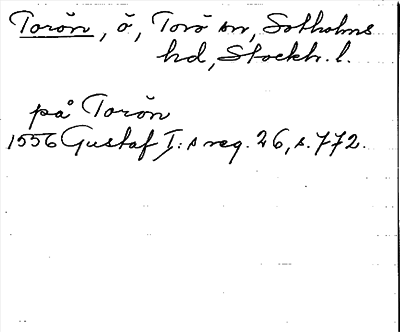 Torön, ö, Torö sn, Sotholms
hd, Stockh. l.
på Torön
1556 Gustaf I:s reg. 26, s. 772.